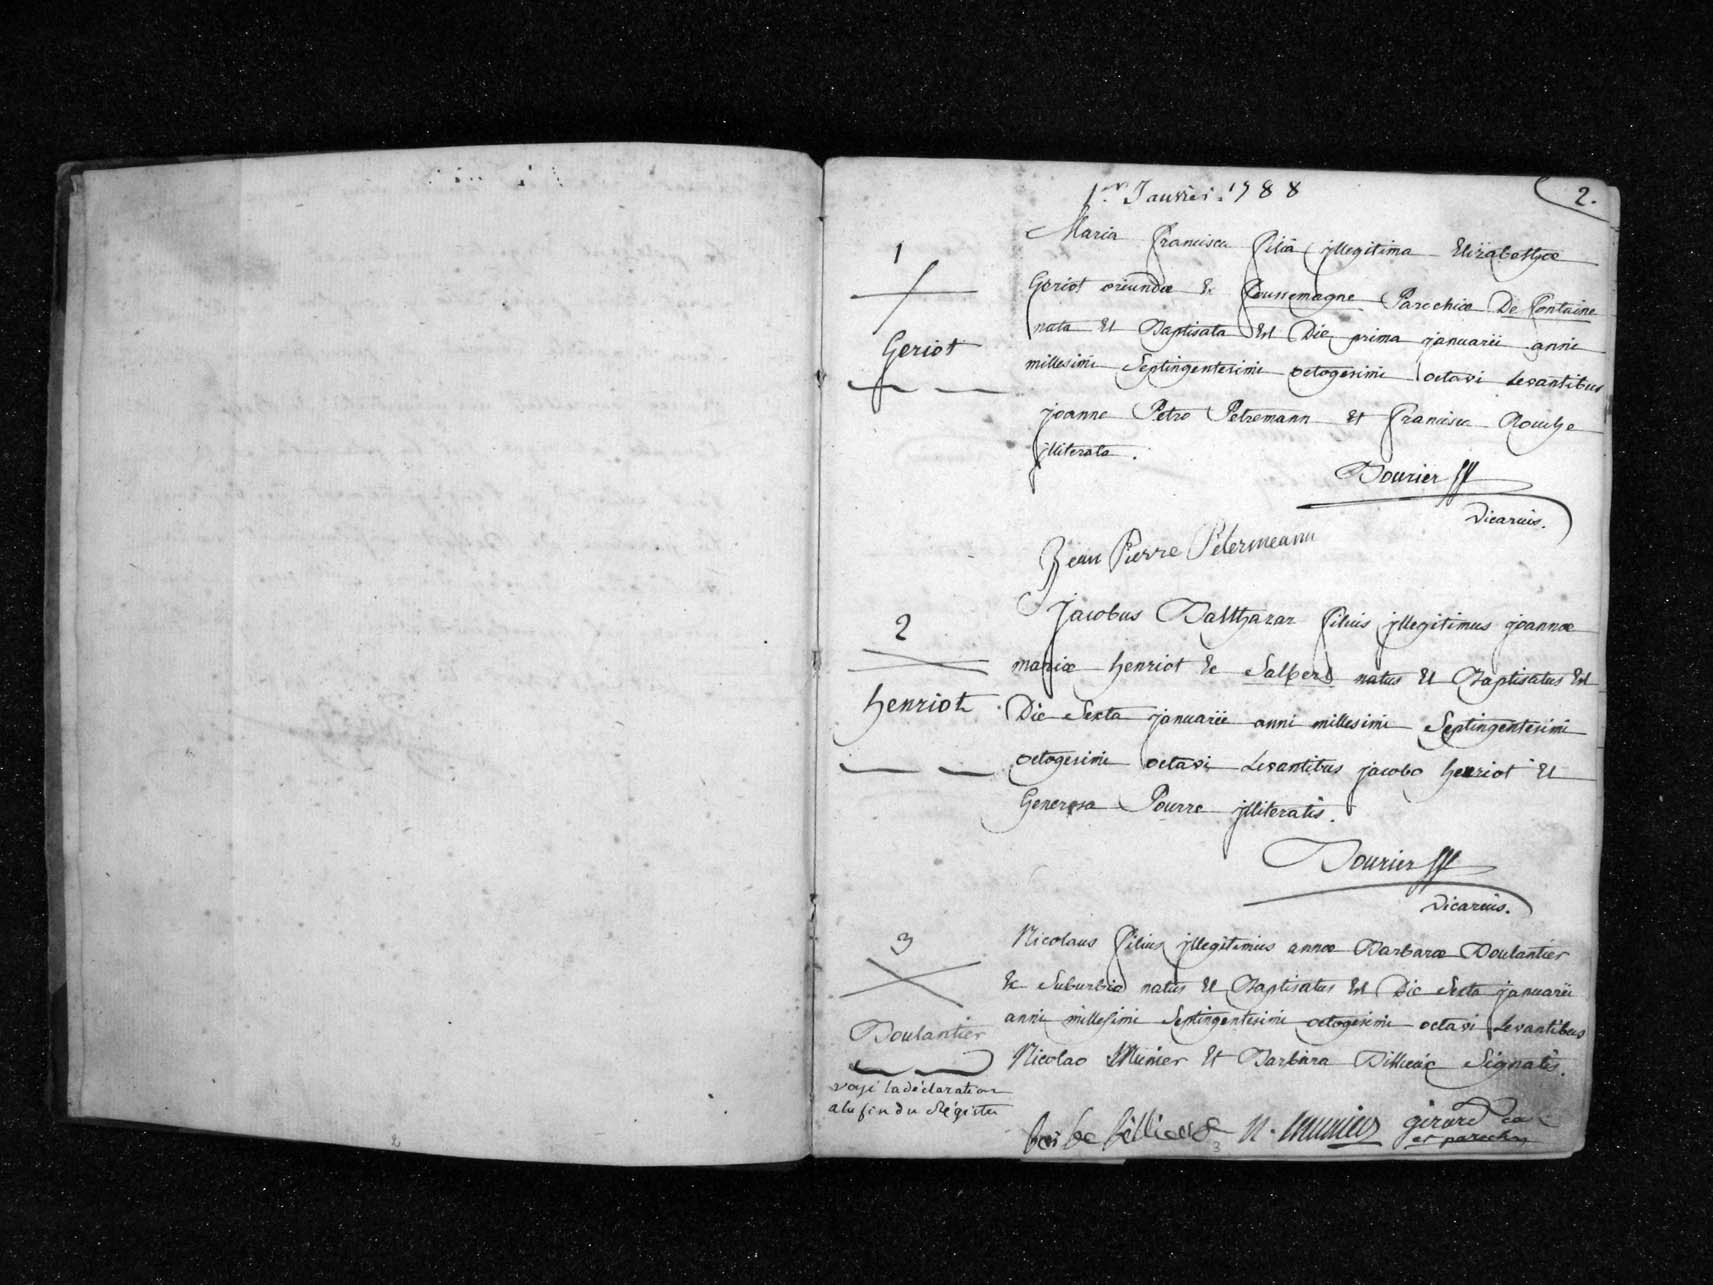 1.er Janvier. 1788
2.
1
Geriot
Maria Francisca Filia illegitima Elizabethæ
Geriot oriundæ Ex Founemagne Parochiæ De Fontaine
nata Et Baptisata Est Die prima januarii anni
millesimi Septingentesimi octogesimi octavi Levantibus
joanne Petro Petremann Et Francisca Rouche
illiterata.
Bourier
Vicarius.
Jean Pierre Petermeann
2
henriot
Jacobus Balthazar filius illegitimus joannæ
mariæ henriot Ex Salbert natus Et Baptisatus Est
Die Sexta januarii anni millesimi Septingentesimi
octogesimi octavi Levantibus jacobo henriot Et
Generosa Pourre illiteratis.
Bourier
Vicarius.
3
Boulantier
voyé la déclaration
a la fin du Régistre
Nicolaus filius illegitimus annæ Barbaræ Boulantier
Ex Suburbio natus Et Baptisatus Est Die Sexta januarii
anni millesimi Septingentesimi octogesimi octavi Levantibus
Nicolao Munier Et Barbara Billieux Signatis.
n. munier girard
et parochus
2
3